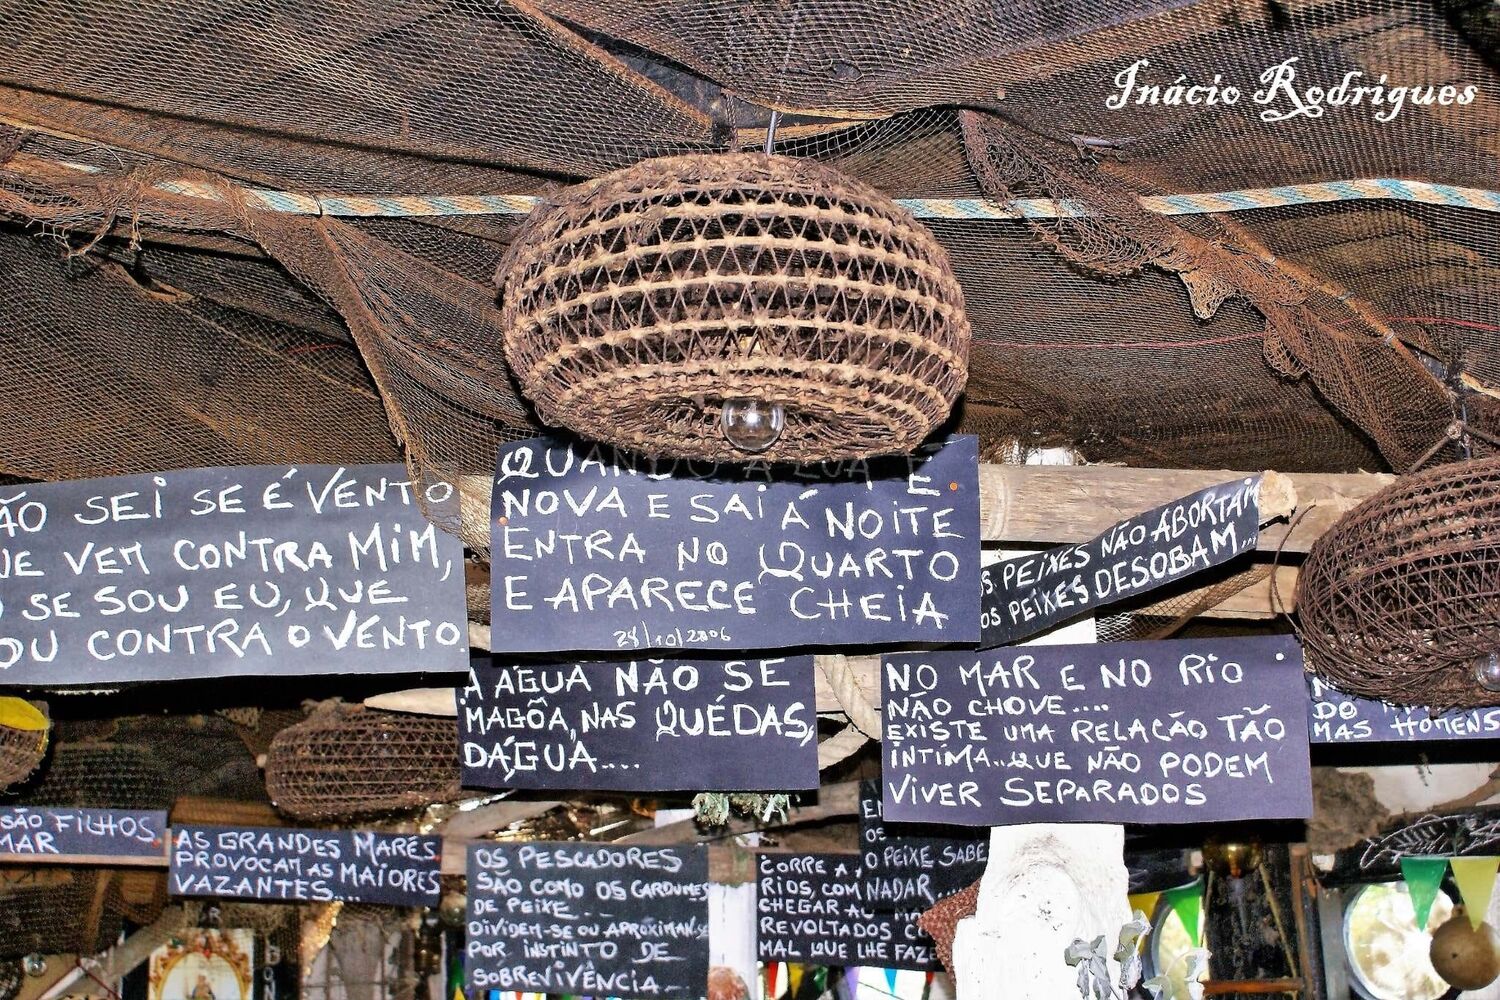 Inácio Rodrigues
SEI SE É VENTO
VEM CONTRA MIM,
SE SOU EU, QUE
CONTRA O VENTO.
QUANDO A LUA É
NOVA E SAI Á NOITE
ENTRA NO QUARTO
E APARECE CHEIA
PEIXES NÃO ABORTAM
OS PEIXES DESOBAM...
A ÁGUA NÃO SE
MAGÔA, NAS QUÉDAS,
DÁGUA....
NO MAR E NO RIO
NÃO CHOVE....
EXISTE UMA RELACÃO TÃO
INTÍMA..QUE NÃO PODEM
VIVER SEPARADOS
DO
MAS HOMENS
SÃO FILHOS
MAR
AS GRANDES MARÉS
PROVOCAM AS MAIORES
VAZANTES....
OS PESCADORES
SÃO COMO OS CARDUMES
DE PEIXE...
DIVIDEM-SE OU APROXIMAN-SE
POR INSTINTO DE
SOBREVIVÊNCIA..
OS
O PEIXE SABE
NADAR....
CORRE A
RIOS, COM
CHEGAR AO
REVOLTADOS
MAL QUE LHE